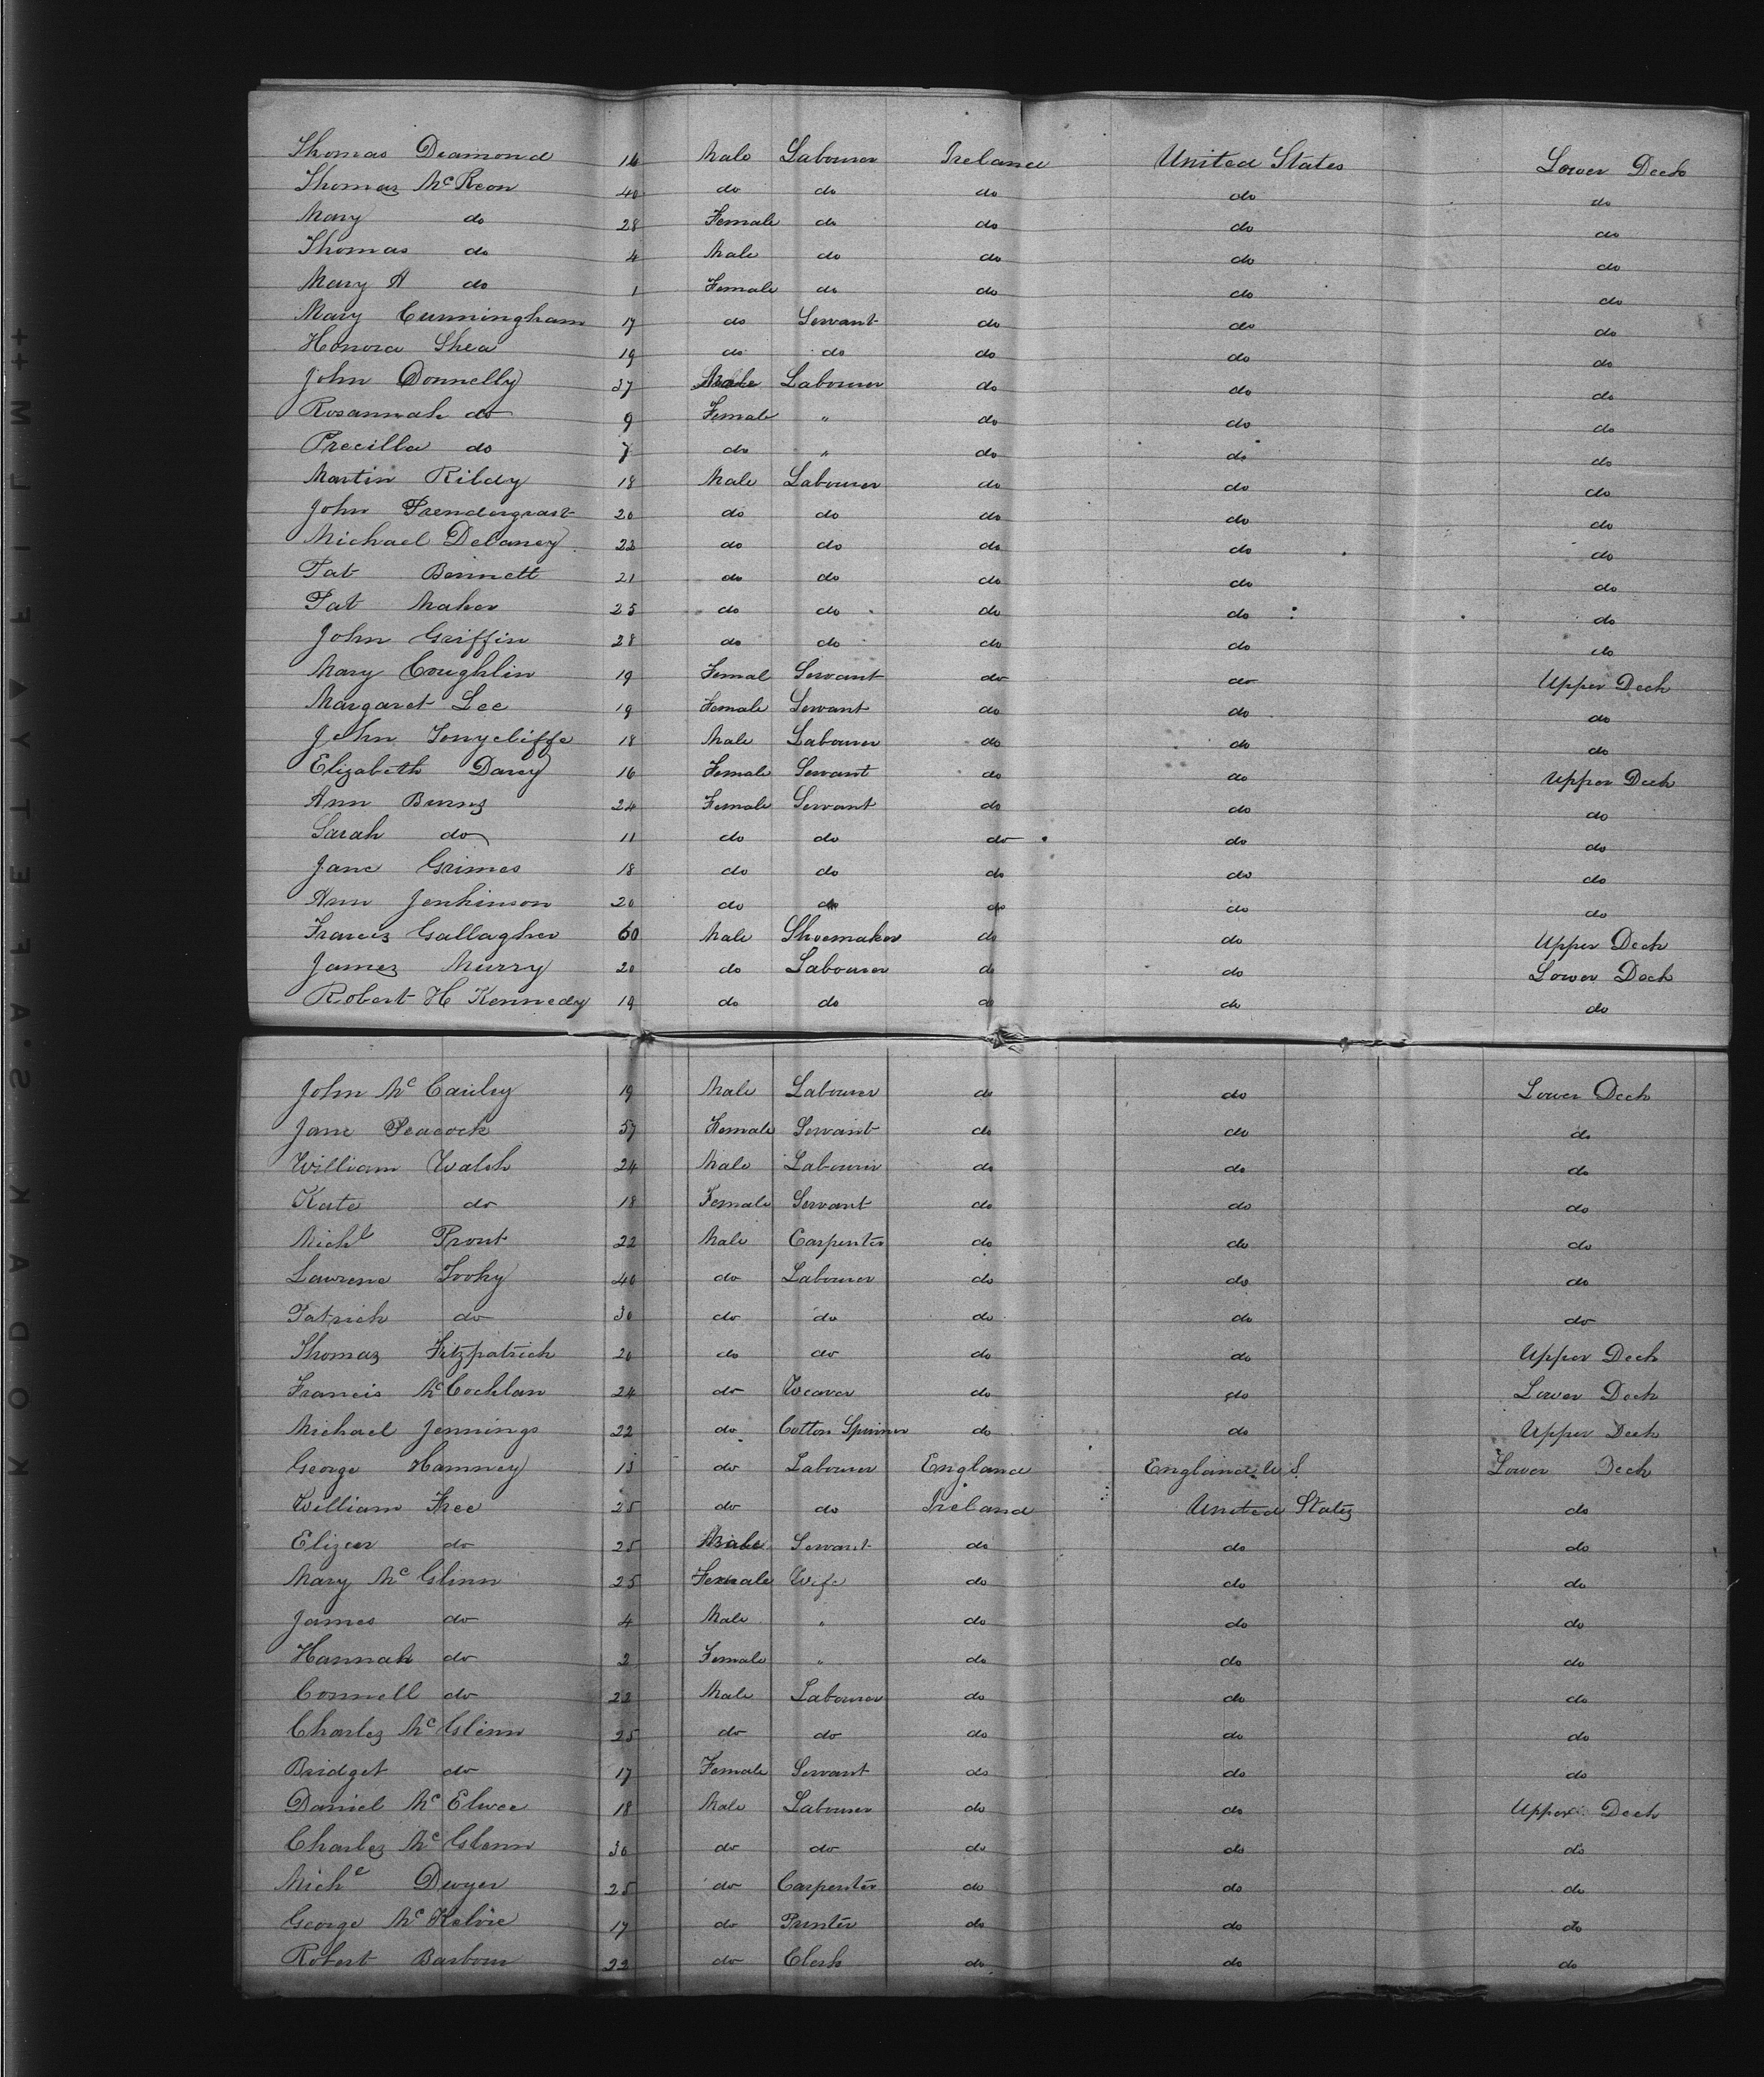 Thomas Diamond 14 Male Labourer Ireland United States Lower Deck
Thomas McKeon 40 do do do do do
Mary do 28 Female do do do do
Thomas do 4 Male do do do do
Mary A do 1 Female do do do do
Mary Cunningham 17 do Servant do do do
Honora Shea 19 do do do do do
John Donnelly 37 Male Labourer do do do
Rosannah do 9 Female " do do do
Precilla do 7 do " do do do
Martin Kilday 18 Male Labourer do do do
John Prendergrast 20 do do do do do
Michael Delaney 22 do do do do do
Pat Bennett 21 do do do do do
Pat Maher 25 do do do do do
John Griffin 28 do do do do do
Mary Coughlin 19 Femal Servant do do Upper Deck
Margaret Lee 19 Female Servant do do do
John 18 Male Labourer do do do
Elizabeth Darcy 16 Female Servant do do Upper Deck
Ann Burns 24 Female Servant do do do
Sarah do 11 do do do do do
Jane Grimes 18 do do do do do
Ann Jenkinson 20 do do do do do
Francis Gallagher 60 Male Shoemaker do do Upper Deck
James Murry 20 do Labourer do do Lower Deck
Robert H Kennedy 19 do do do do do
John McCauley 19 Male Labourer do do Lower Deck
Jane Peacock 57 Female Servant do do do
William Walsh 24 Male Labourer do do do
Kate do 18 Female Servant do do do
Michl Prout 22 Male Carpenter do do do
Lawrence Toohy 40 do Labourer do do do
Patrick do 30 do do do do do
Thomas Fitzpatrick 20 do do do do Upper Deck
Francis McCochlan 24 do Weaver do do Lower Deck
Michael Jennings 22 do Cotton Spinner do do Upper Deck
George Hamney 13 do Labourer England England U S Lower Deck
William Free 25 do do Ireland United States do
Elizer do 25 Male Servant do do do
Mary McGlinn 25 Female Wife do do do
James do 4 Male " do do do
Hannah do 2 Female " do do do
Connell do 22 Male Labourer do do do
Charles McGlinn 25 do do do do do
Bridget do 17 Female Servant do do do
Daniel McElwee 18 Male Labourer do do Upper Deck
Charles McGlenn 30 do do do do do
Michl Dwyer 25 do Carpenter do do do
George McKelvie 17 do Printer do do do
Robert Barbour 22 do Clerk do do do
KODAK SAFETY FILM